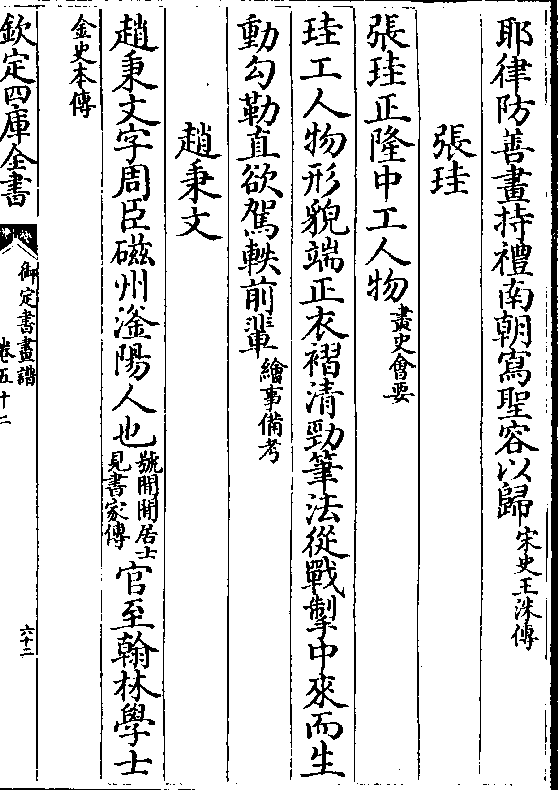 耶律防善畫持禮南朝寫聖容以歸宋史王洙傳
張珪
張珪正隆中工人物畫史會要
珪工人物形貌端正衣褶清勁筆法從戰掣中來而生
動勾勒直欲駕軼前輩繪事備考
趙秉文
趙秉文字周臣磁州滏陽人也號閒閒居士見書家傳官至翰林學士
金史本傳
欽定四庫全書
御定書畫譜
卷五十二
六十二